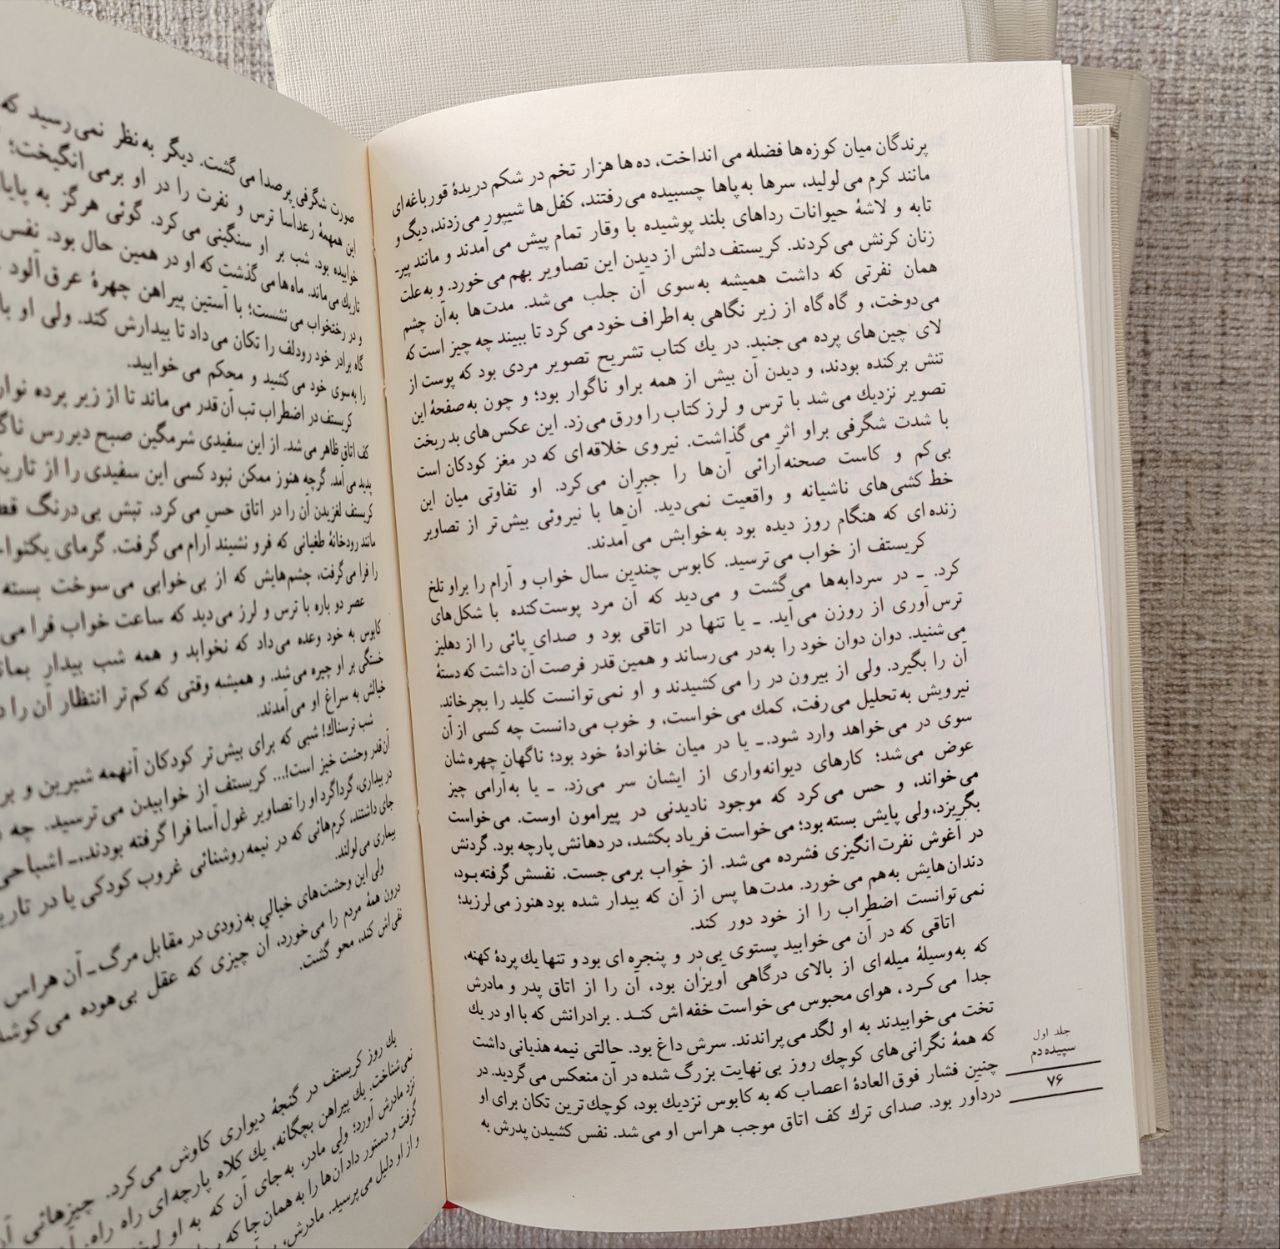 پرندگان میان کوزه‌ها فضله می‌انداخت، ده‌ها هزار تخم در شکم دریدهٔ قورباغه‌ای
مانند کرم می‌لولید، سرها به‌پاها چسبیده می‌رفتند، کفل‌ها شیپور می‌زدند، دیگ و
تابه و لاشهٔ حیوانات رداهای بلند پوشیده با وقار تمام پیش می‌آمدند و مانند پیر-
زنان کرنش می‌کردند. کریستف دلش از دیدن این تصاویر بهم می‌خورد. و به‌علت
همان نفرتی که داشت همیشه به‌سوی آن جلب می‌شد. مدت‌ها به‌آن چشم
می‌دوخت، و گاه‌گاه از زیر نگاهی به‌اطراف خود می‌کرد تا ببیند چه چیز است که
لای چین‌های پرده می‌جنبد. در یك کتاب تشریح تصویر مردی بود که پوست از
تنش برکنده بودند، و دیدن آن بیش از همه براو ناگوار بود؛ و چون به‌صفحهٔ این
تصویر نزدیك می‌شد با ترس و لرز کتاب را ورق می‌زد. این عکس‌های بدریخت
با شدت شگرفی براو اثر می‌گذاشت. نیروی خلاقه‌ای که در مغز کودکان است
بی‌کم و کاست صحنه‌آرائی آن‌ها را جبران می‌کرد. او تفاوتی میان این
خط‌کشی‌های ناشیانه و واقعیت نمی‌دید. آن‌ها با نیروئی بیش‌تر از تصاویر
زنده‌ای که هنگام روز دیده بود به‌خوابش می‌آمدند.
کریستف از خواب می‌ترسید. کابوس چندین سال خواب و آرام را براو تلخ
کرد. ـ در سردابه‌ها می‌گشت و می‌دید که آن مرد پوست‌کنده با شکل‌های
ترس‌آوری از روزن می‌آید. ـ یا تنها در اتاقی بود و صدای پائی را از دهلیز
می‌شنید. دوان دوان خود را به‌در می‌رساند و همین‌قدر فرصت آن داشت که دستهٔ
آن را بگیرد. ولی از بیرون در را می‌کشیدند و او نمی‌توانست کلید را بچرخاند.
نیرویش به‌تحلیل می‌رفت، کمك می‌خواست، و خوب می‌دانست چه کسی از آن
سوی در می‌خواهد وارد شود. ـ یا در میان خانوادهٔ خود بود؛ ناگهان چهره‌شان
عوض می‌شد؛ کارهای دیوانه‌واری از ایشان سر می‌زد. ـ یا به‌آرامی چیز
می‌خواند، و حس می‌کرد که موجود نادیدنی در پیرامون اوست. می‌خواست
بگریزد، ولی پایش بسته بود؛ می‌خواست فریاد بکشد، در دهانش پارچه بود. گردنش
در آغوش نفرت‌انگیزی فشرده می‌شد. از خواب برمی‌جست. نفسش گرفته‌بود،
دندان‌هایش به‌هم می‌خورد. مدت‌ها پس از آن که بیدار شده بود هنوز می‌لرزید؛
نمی‌توانست اضطراب را از خود دور کند.
اتاقی که در آن می‌خوابید پستوی بی‌در و پنجره‌ای بود و تنها یك پردهٔ کهنه،
که به‌وسیلهٔ میله‌ای از بالای درگاهی آویزان بود، آن را از اتاق پدر و مادرش
جدا می‌کرد، هوای محبوس می‌خواست خفه‌اش کند. برادرانش که با او در یك
تخت می‌خوابیدند به او لگد می‌پراندند. سرش داغ بود. حالتی نیمه هذیانی داشت
که همهٔ نگرانی‌های کوچك روز بی‌نهایت بزرگ شده در آن منعکس می‌گردید. در
چنین فشار فوق‌العادهٔ اعصاب که به کابوس نزدیك بود، کوچك‌ترین تکان برای او
دردآور بود. صدای ترك کف اتاق موجب هراس او می‌شد. نفس کشیدن پدرش به
جلد اول
سپیده‌دم
۷۶
صورت شگرفی پرصدا می‌گشت. دیگر به‌نظر نمی‌رسید که
این همهمهٔ رعدآسا ترس و نفرت را در او برمی‌انگیخت؛
خوابیده بود. شب بر او سنگینی می‌کرد. گوئی هرگز به
تاریك می‌ماند. ماه‌ها می‌گذشت که او در همین حال بود. نفس
و در رختخواب می‌نشست؛ با آستین پیراهن چهرهٔ عرق‌آلود
گاه برادر خود رودلف را تکان می‌داد تا بیدارش کند. ولی او
را به‌سوی خود می‌کشید و محکم می‌خوابید.
کریستف در اضطراب تب آن‌قدر می‌ماند تا از زیر پرده
کف اتاق ظاهر می‌شد. از این سفیدی شرمگین صبح دیررس
پدید می‌آمد. گرچه هنوز ممکن نبود کسی این سفیدی را از
کریستف لغزیدن آن را در اتاق حس می‌کرد. تپش بی‌درنگ
مانند رودخانهٔ طغیانی که فرو نشیند آرام می‌گرفت. گرمای
را فرا می‌گرفت، چشم‌هایش که از بی‌خوابی می‌سوخت بسته
عصر دو باره با ترس و لرز می‌دید که ساعت خواب فرا
کابوس به خود وعده می‌داد که نخوابد و همه شب بیدار
خستگی بر او چیره می‌شد. و همیشه وقتی که کم‌تر انتظار آن را
خیالش به سراغ او می‌آمدند.
شب ترسناك! شبی که برای بیش‌تر کودکان آنهمه شیرین و
آن‌قدر وحشت خیز است!... کریستف از خوابیدن می‌ترسید. چه
در بیداری، گرداگرد او را تصاویر غول‌آسا فرا گرفته بودند، ـ اشباحی
جای داشتند، کرم‌هائی که در نیمه روشنائی غروب کودکی یا در
بیماری می‌لولند.
ولی این وحشت‌های خیالی به‌زودی در مقابل مرگ ـ آن هراس
درون همهٔ مردم را می‌خورد، آن چیزی که عقل بی‌هوده
نفی‌اش کند، محو گشت.
یك روز کریستف در گنجهٔ دیواری کاوش می‌کرد. چیزهائی
نمی‌شناخت. یك پیراهن بچگانه، یك کلاه پارچه‌ای راه راه.
نزد مادرش آورد؛ ولی مادر، به‌جای آن که به او
گرفت و دستور داد آن‌ها را به همان جا که
و از او دلیل می‌پرسید. مادرش،